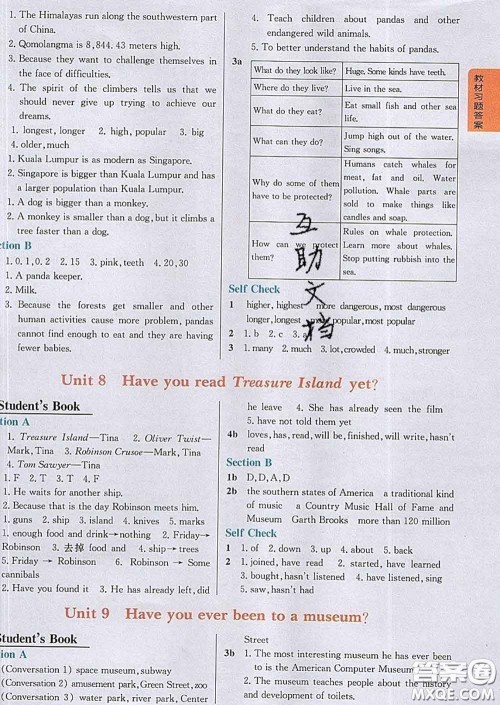 1. The Himalayas run along the southwestern part
of China.
2. Qomolangma is 8,844. 43 meters high.
3. Because they want to challenge themselves in
the face of difficulties.
4. The spirit of the climbers tells us that we
should never give up trying to achieve our
dreams.
1. longest, longer 2. high, popular 3. big
4. older,much
1. Kuala Lumpur is as modern as Singapore.
2. Singapore is bigger than Kuala Lumpur and has
a larger population than Kuala Lumpur.
1. A dog is bigger than a monkey.
2. A monkey is smaller than a dog, but it climbs a
tree faster than a dog.
ction B
1. 0. 1, 0. 2 2. 15 3. pink, teeth 4. 20, 30
1. A panda keeper.
2. Milk.
3. Because the forests get smaller and other
human activities cause more problem, pandas
cannot find enough to eat and they are having
fewer babies.
4. Teach children about pandas and other
endangered wild animals.
5. To better understand the habits of pandas.
3a
What do they look like? Huge. Some kinds have teeth.
Where do they live? Live in the sea.
What do they eat? Eat small fish and other sea
life.
What can they do? Jump high out of the water.
Sing songs.
Why do some of them
have to be protected? Humans catch whales for
meat, fat and oil. Water
pollution. Whale parts are
sold to make things like
candles and soap.
How can we protect
them? Rules on whale protection.
Learn more about whales.
Stop putting rubbish into the
sea.
教材习题答案
互助文档
Self Check
1 higher, highest more dangerous, most dangerous
longer, longest more popular, most popular
2 1. b 2. c 3. a
3 1. many 2. much 3. lot, crowded 4. much, stronger
Unit 8 Have you read Treasure Island yet?
Student's Book
ction A
1. Treasure Island—Tina 2. Oliver Twist—
Mark, Tina 3. Robinson Crusoe—Mark, Tina
4. Tom Sawyer—Tina
1. F 2. T 3. T 4. F
1. He waits for another ship.
2. Because that is the day Robinson meets him.
1. guns 2. ship 3. island 4. knives 5. marks
1. enough food and drink→nothing 2. Friday→
Robinson 3. 去掉 food and 4. ship→ trees
5. Friday → Robinson 6. Some
cannibals
2. Have you found it 3. He has already left, did
he leave 4. She has already seen the film
5. have not told them yet
4b loves, has, read, will be, finished, will write, hasn't
read
Section B
1b D, D, A, D
2b the southern states of America a traditional kind
of music a Country Music Hall of Fame and
Museum Garth Brooks more than 120 million
Self Check
1 1. of 2. down 3. up 4. about 5. back
2 1. joined, have read 2. started, have learned
3. bought, hasn't listened 4. have listened, sing
5. saw, hasn't had
Unit 9 Have you ever been to a museum?
Student's Book
ction A
(Conversation 1) space museum, subway
(Conversation 2) amusement park, Green Street, zoo
(Conversation 3) water park, river park, Center
Street
3b 1. The most interesting museum he has ever been
to is the American Computer Museum.
2. It teaches people about the history and
development of toilets.
答案圈
MXQE.COM